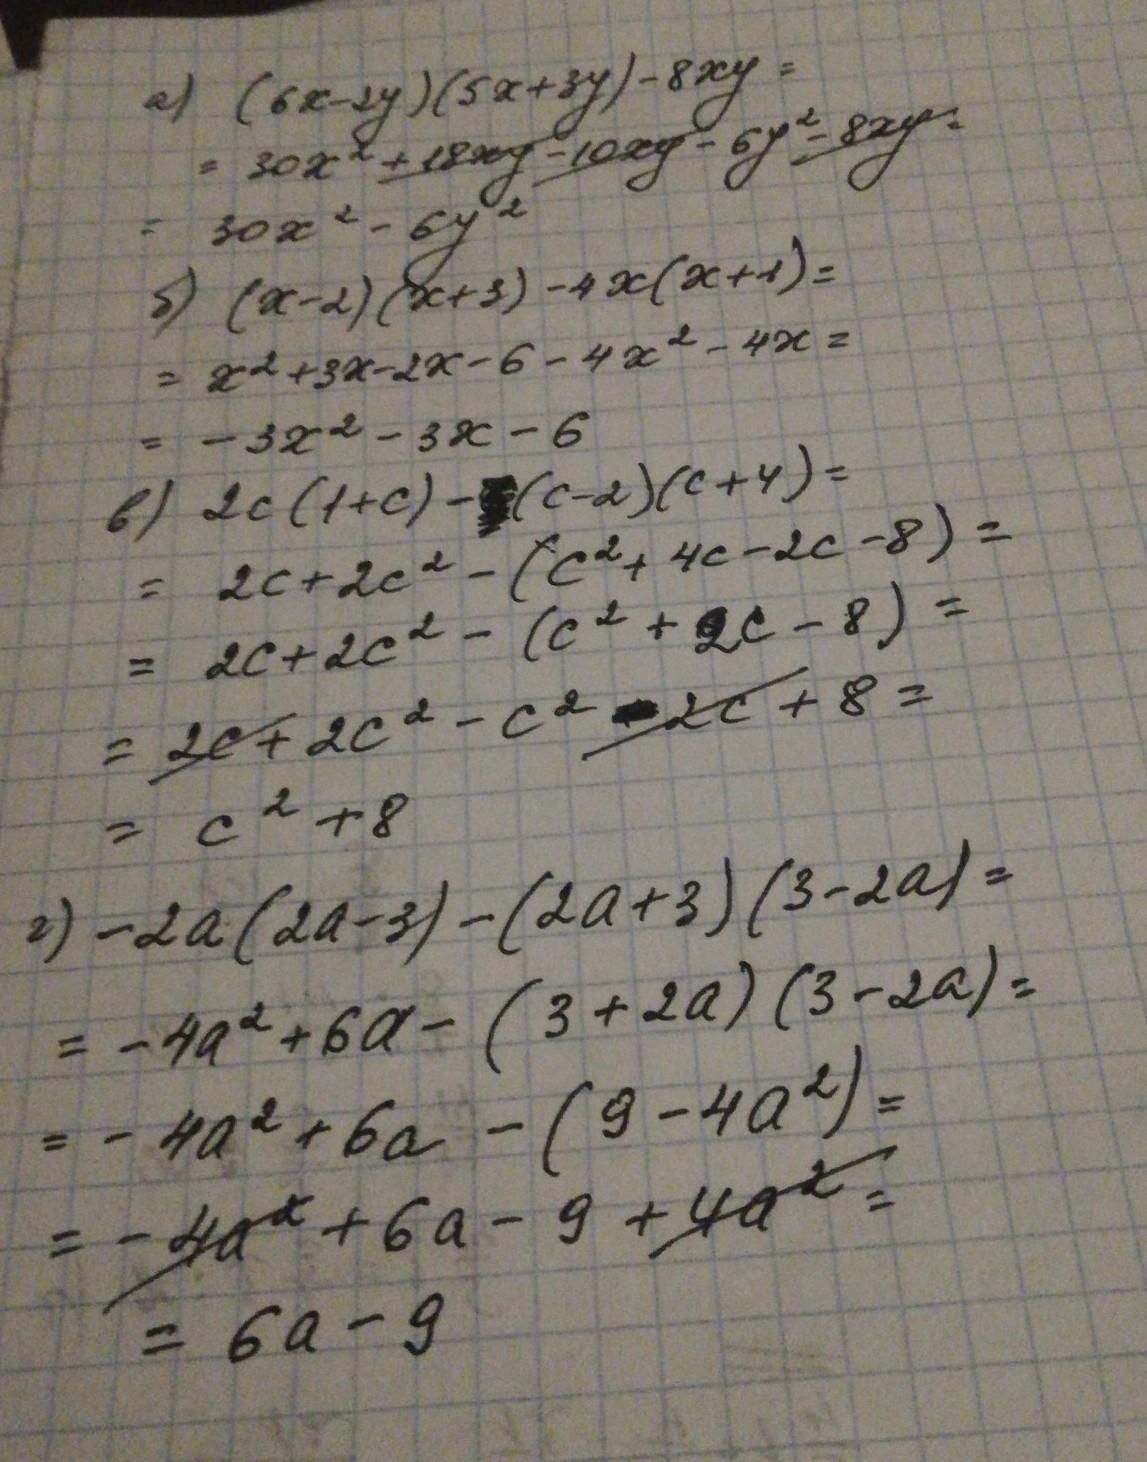 а) (6x-2y)(5x+3y)-8xy=
= 30x² +18xy -10xy - 6y² - 8xy =
= 30x² - 6y²
б) (x-2)(x+3) -4x(x+1)=
= x²+3x-2x-6-4x²-4x=
= -3x²-3x-6
в) 2c(1+c)-(c-2)(c+4)=
= 2c+2c²-(c²+4c-2c-8)=
= 2c+2c²-(c²+2c-8)=
= 2c+2c²-c²-2c+8=
= c²+8
г) -2a(2a-3)-(2a+3)(3-2a)=
= -4a²+6a-(3+2a)(3-2a)=
= -4a²+6a-(9-4a²)=
= -4a²+6a-9+4a²=
= 6a-9